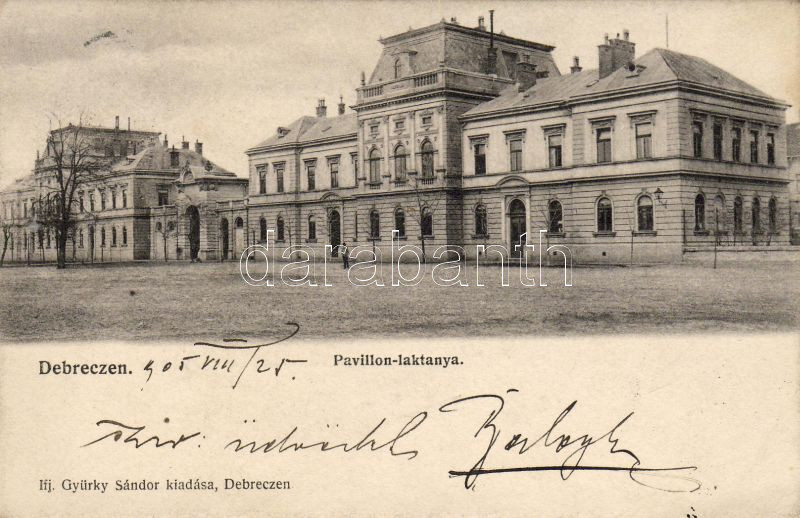 darabanth
Debreczen. 905 VIII/25. Pavillon-laktanya.
sziv. üdvözlet Balogh
Ifj. Gyürky Sándor kiadása, Debreczen